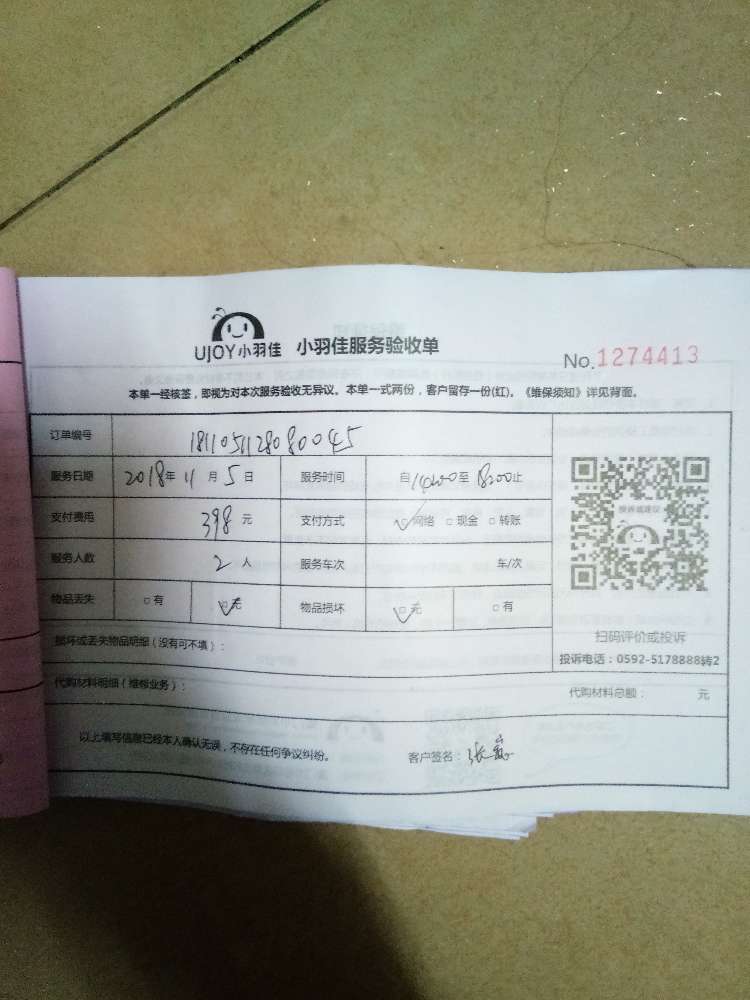 UJOY小羽佳 小羽佳服务验收单
No.1274413
本单一经核签，即视为对本次服务验收无异议。本单一式两份，客户留存一份(红)。《维保须知》详见背面。
订单编号 1811051128080045
服务日期 2018年 11月 5日 服务时间 自14:00至18:00止
支付费用 398元 支付方式 ☑网络 □现金 □转账
服务人数 2人 服务车次 车/次
物品丢失 □有 ☑无 物品损坏 ☑无 □有
投诉或建议
扫码评价或投诉
损坏或丢失物品明细（没有可不填）：
投诉电话：0592-5178888转2
代购材料明细（维修业务）：
代购材料总额： 元
以上填写信息已经本人确认无误，不存在任何争议纠纷。 客户签名：张